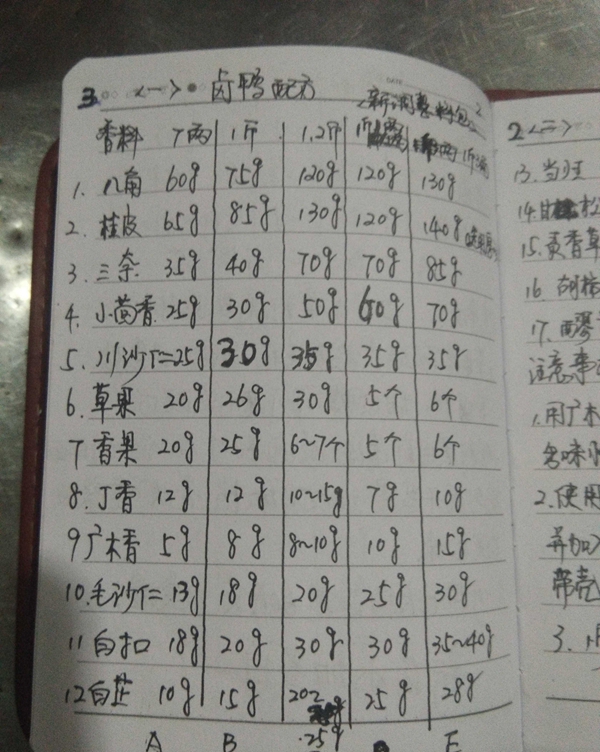 3. <一> 卤鸭配方 新调整料包
香料 7两 1斤 1.2斤
1. 八角 60g 75g 120g 120g 130g
2. 桂皮 65g 85g 130g 120g 140g
3. 三奈 35g 40g 70g 70g 85g
4. 小茴香 25g 30g 50g 60g 70g
5. 川沙仁 25g 30g 35g 35g 35g
6. 草果 20g 26g 30g 5个 6个
7 香果 20g 25g 6~7个 5个 6个
8. 丁香 12g 12g 10~15g 7g 10g
9 广木香 5g 8g 8~10g 10g 15g
10. 毛沙仁 13g 18g 20g 25g 30g
11 白扣 18g 20g 30g 30g 35~40g
12 白芷 10g 15g 20 25g 28g
25g
A B E
2 <二>
13. 当归
14. 甘松
15. 灵香草
16. 胡椒
17.
注意事
1. 用广木
含味
2. 使用
并加入
带壳
3.